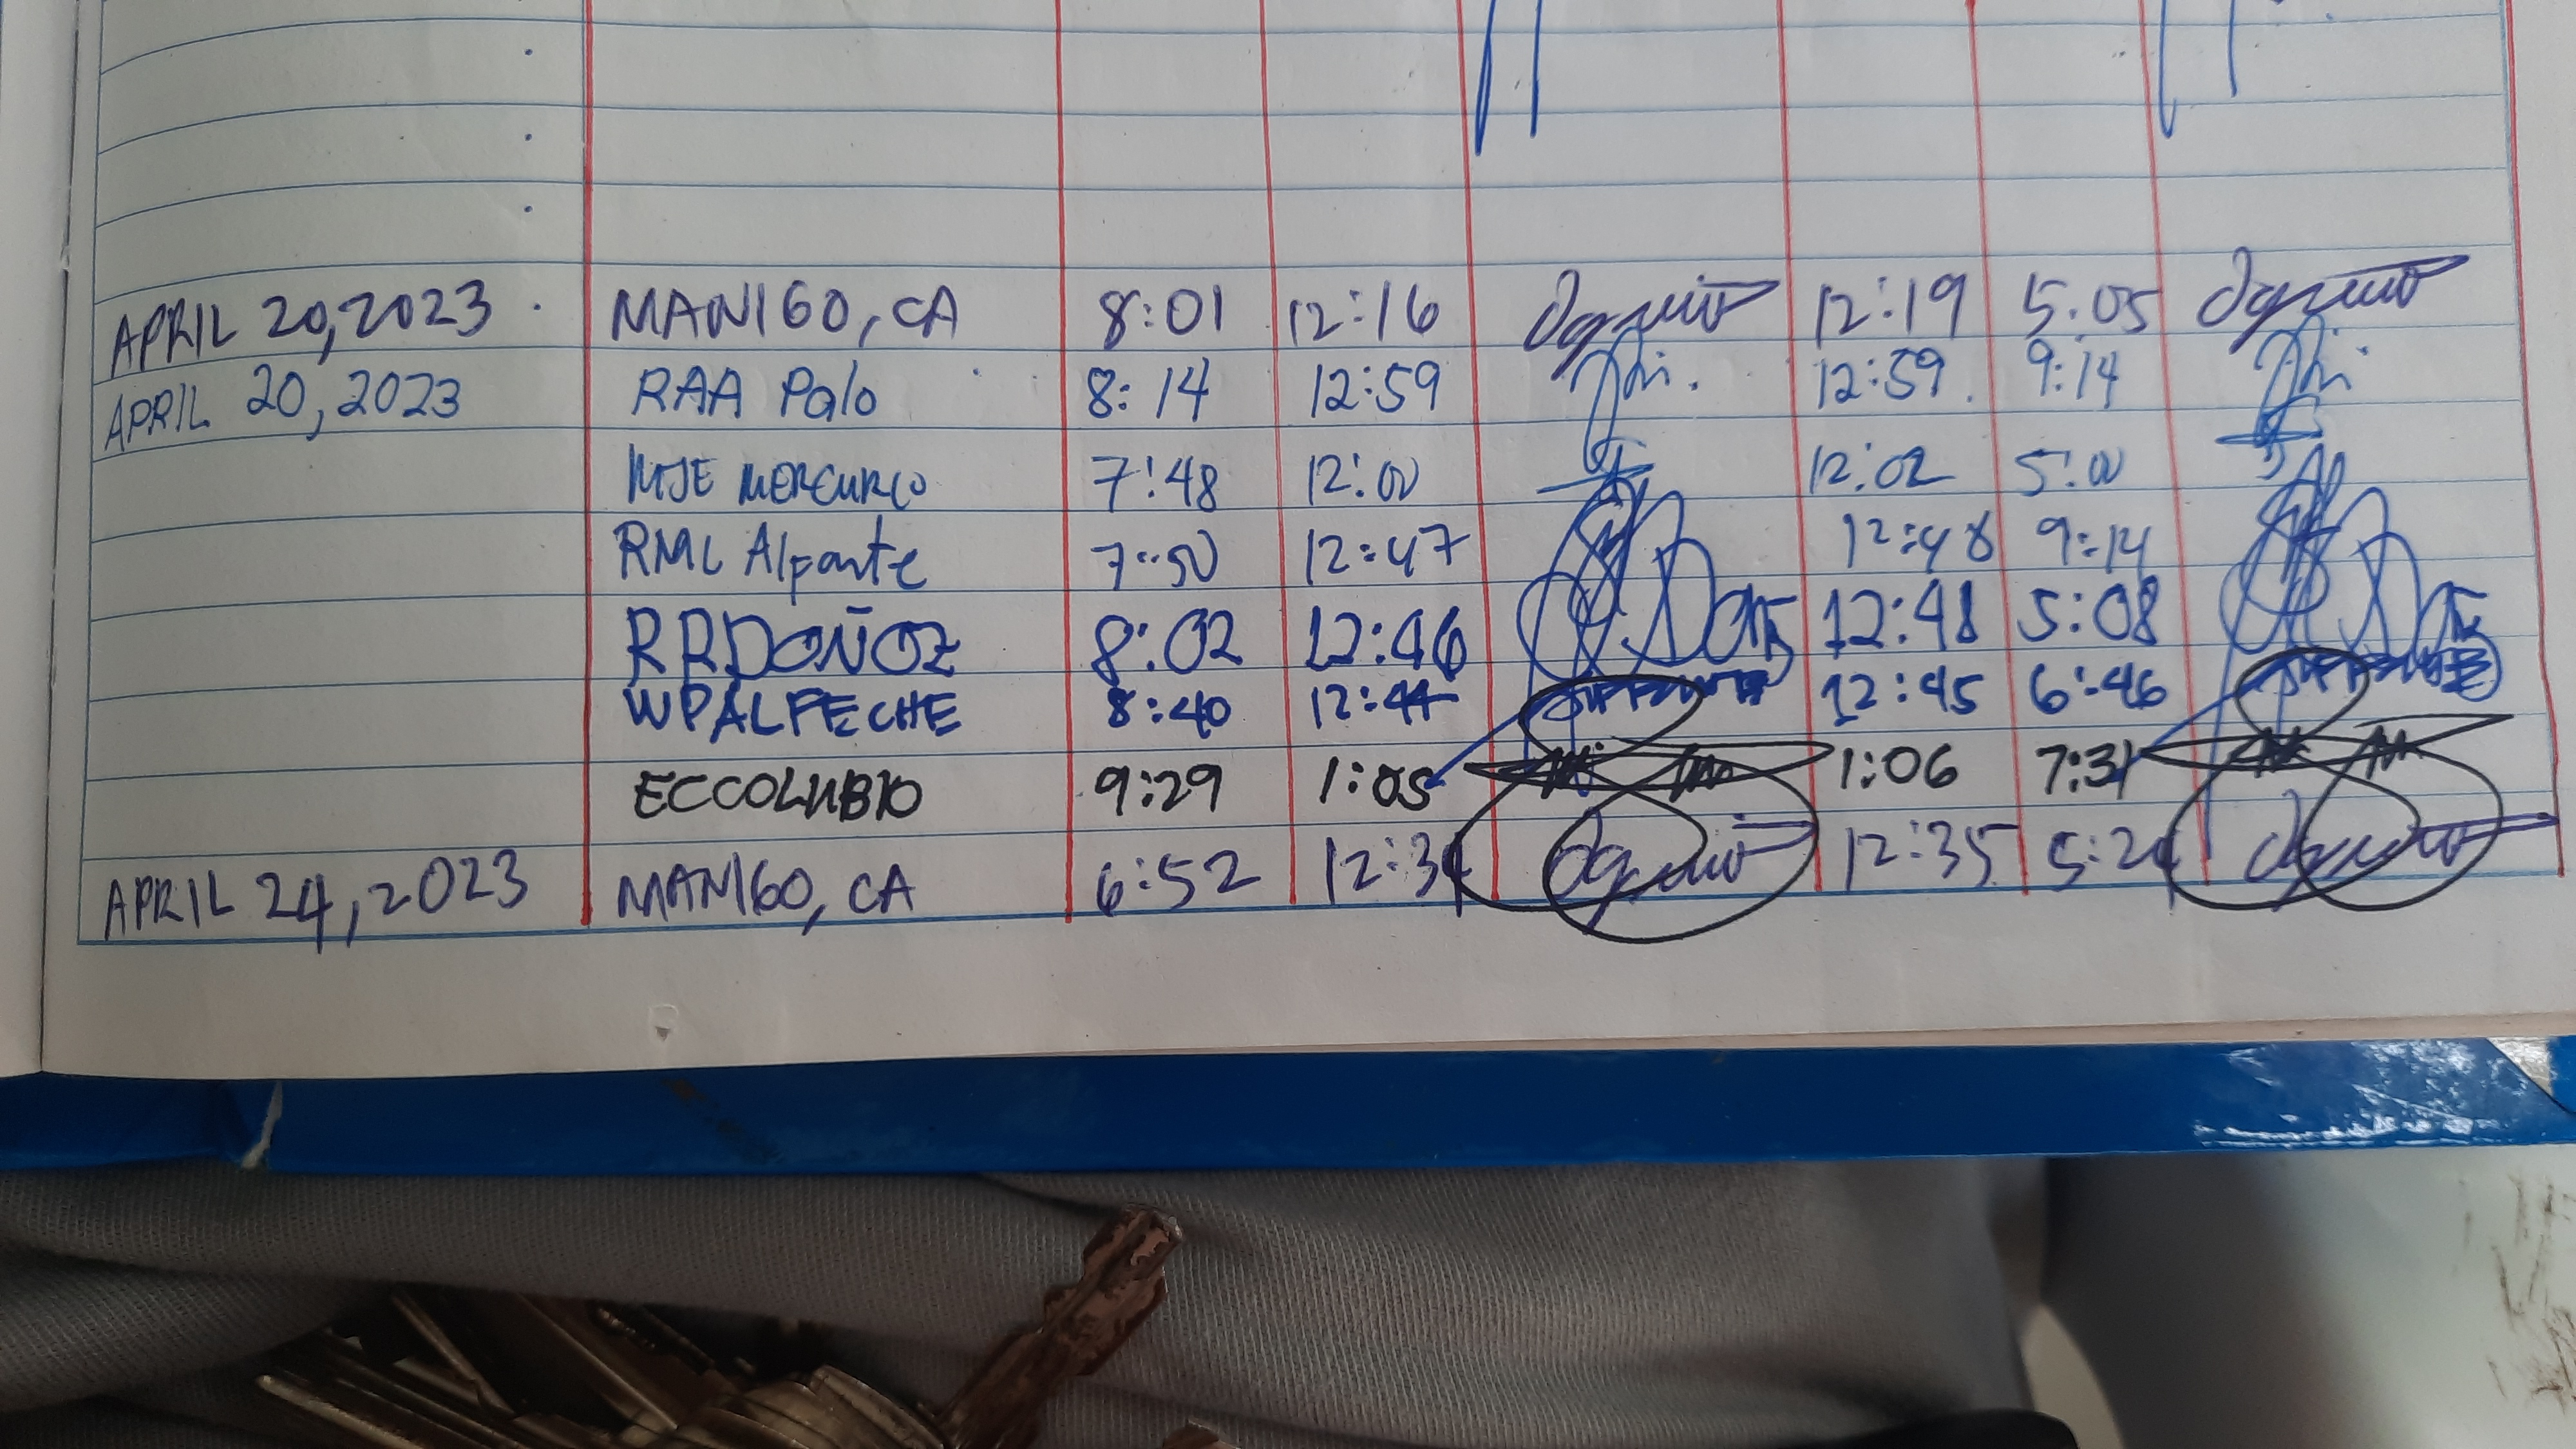 APRIL 20, 2023 MANIGO, CA 8:01 12:16 12:19 5:05
APRIL 20, 2023 RAA Palo 8:14 12:59 12:59 9:14
MJE MERCURIO 7:48 12:00 12:02 5:00
RML Alparte 7:50 12:47 12:48 9:14
RRDOÑOZ 8:02 12:46 12:48 5:08
WPALFECHE 8:40 12:44 12:45 6:46
ECCOLUBIO 9:29 1:05 1:06 7:31
APRIL 24, 2023 MANIGO, CA 6:52 12:34 12:35